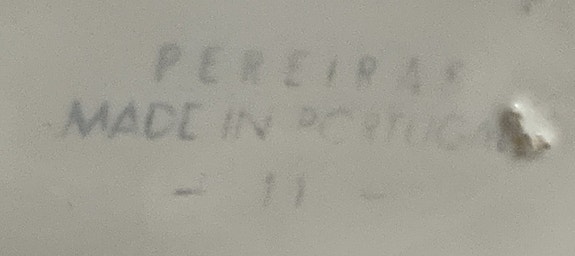 PEREIRAS
MADE IN PORTUGAL
- 11 -